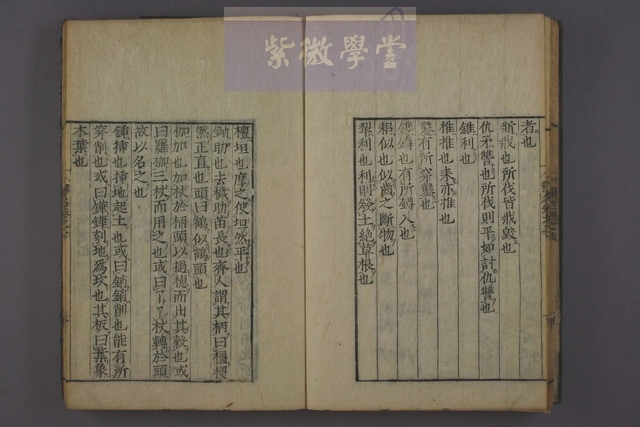 紫微學堂
者也
斨戕也所伐皆戕毀也
仇矛讐也所伐則平如討仇讐也
錐利也
椎推也耒亦推也
鑿有所穿鑿也
鐫鐏也有所鐫入也
耜似也似齒之斷物也
犁利也利則發土絕草根也
檀坦也摩之使坦然平也
鋤助也去穢助苗長也齊人謂其柄曰橿橿
然正直也頭曰鶴似鶴頭也
枷加也加杖於柄頭以撾穗而出其穀也或
曰羅枷三杖而用之也或曰了了杖轉於頭
故以名之也
鍤插也插地起土也或曰銷銷削也能有所
穿削也或曰鏵鏵刳地爲坎也其板曰葉象
木葉也